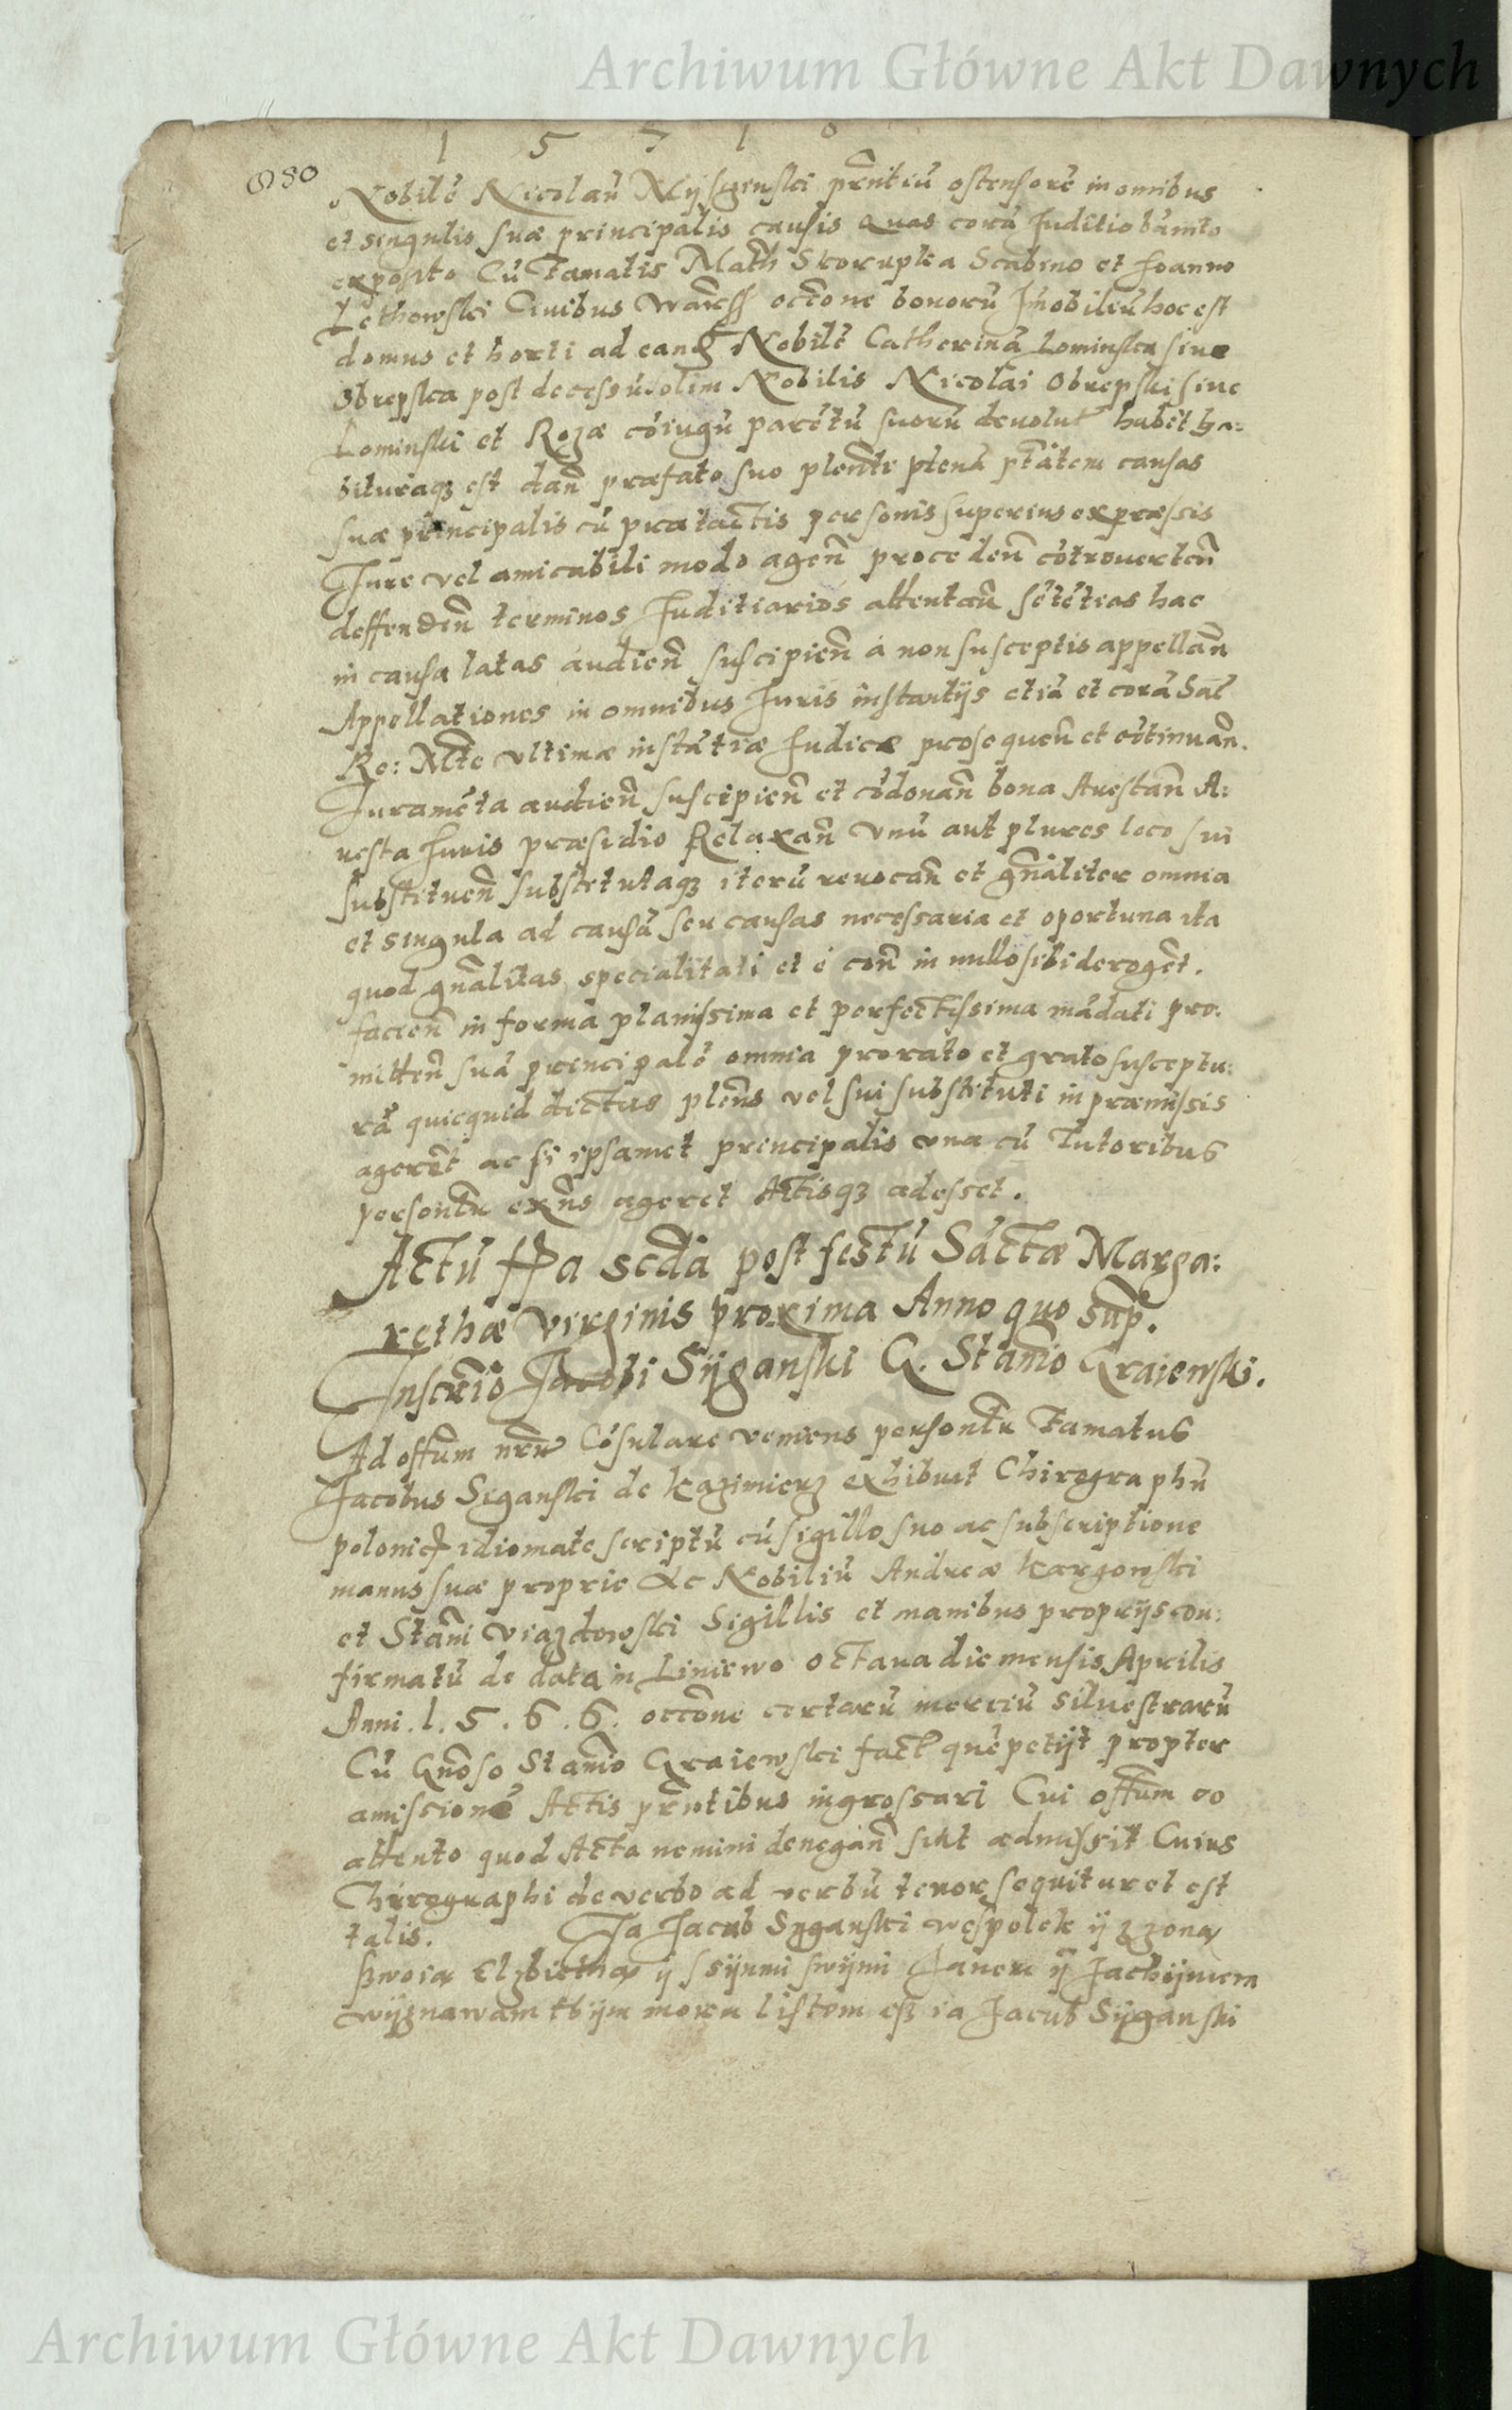 Archiwum Główne Akt Dawnych
1 5 7 1 8
680
Nobilē Nicolaū prn̄tiū ostensorē in omībus
et singulis suæ principalis causis quas corā Juditio bānito
exposito Cū Famatis Math Skorupka Scabino et Joanne
Lethowski Ciuibus Warss occōne bonorū Imobiliū hoc est
domus et horti ad eand Nobilē Catherinā Lominska siue
Obrepska post decessū olim Nobilis Nicolai Obrepski siue
Lominski et Rozæ cōiugū parētū suorū deuolut habet ha:
bituraqꝫ est dan̄ præfato suo plen̄te plenā ptātem causas
suæ principalis cū prætactis personis superius expræssis
Jure vel amicabili modo agen̄ proceden̄ cōtrouerten̄
deffenden̄ terminos Juditiarios attentan̄ sētētias hac
in causa latas audien̄ suscipien̄ a non susceptis appellan̄
Appellationes in omnibus Juris instantijs etiā et corā Sac̄
Re: Mt̄e vltimæ instātiæ Judice prosequen̄ et cōtinuan̄.
Juramēta audien̄ suscipien̄ et cōdonan̄ bona Arestan̄ A:
resta Juris præsidio Relaxan̄ vnū aut plures loco sui
substituen̄ substitutaqꝫ iterū reuocan̄ et gn̄aliter omnia
et singula ad causā seu causas necessaria et oportuna ita
quod gn̄alitas specialitati et e con̄ in nullo sibi derogēt.
facien̄ in forma planissima et perfectissima mādati pro:
mitten̄ suā principalē omnia pro rato et grato susceptu:
rā quicquid dictus plen̄s vel sui substituti in præmissis
agerēt ac si ipsamet principalis vna cū Tutoribus
personlr̄ exn̄s ageret Actisqꝫ adesset.
Actū ffa̅ scd̄a post festū Sāctæ Marga:
rethæ virginis proxima Anno quo sup̄.
Inscr̄io Jacobi Sÿganski G. Stan̄io Graiewski.
Ad offm̄ nrm̄ Cōsulare veniens personlr̄ Famatus
Jacobus Siganski de Kazimierz exhibuit Chirographū
polonico idiomate scriptū cū sigillo suo ac subscriptione
manus suæ proprie Ac Nobiliū Andreæ Kargowski
et Stan̄i Viazdowski Sigillis et manibus proprijs con:
firmatū de data in Liniewo octaua die mensis Aprilis
Anni. 1. 5. 6. 6. occōne certarū merciū siluestrarū
Cū Gn̄oso Stan̄io Graiewski fact quē petijt propter
amiscionē Actis prn̄tibus ingrossari Cui offm̄ eo
attento quod Acta nemini denegan̄ sūt admissit Cuius
Chirographi de verbo ad verbū tenor sequitur et est
talis. Ja Jacub Syganski wespolek ÿ z zoną
swoią Elzbiethą ÿ s sÿnmi swÿmi Janem ÿ Jachÿmem
wÿznawam thÿm listem esz ia Jacub Sÿganski
Archiwum Główne Akt Dawnych